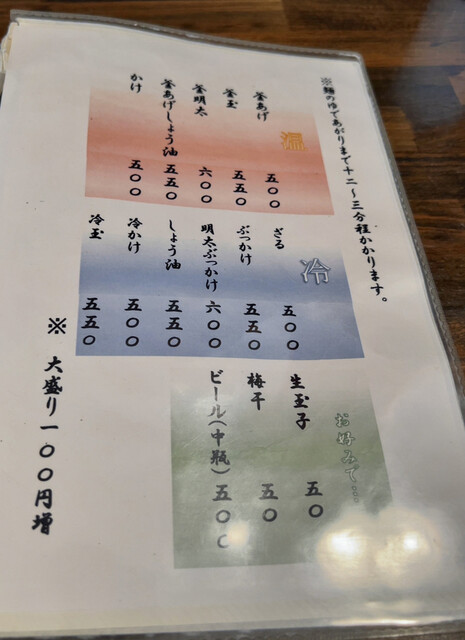 ※麺のゆであがりまで十二〜三分程かかります。
温
釜あげ 五〇〇
釜玉 五五〇
釜明太 六〇〇
釜あげしょう油 五五〇
かけ 五〇〇
冷
ざる 五〇〇
ぶっかけ 五五〇
明太ぶっかけ 六〇〇
しょう油 五五〇
冷かけ 五〇〇
冷玉 五五〇
お好みで…
生玉子 五〇
梅干 五〇
ビール(中瓶) 五〇〇
※ 大盛り一〇〇円増